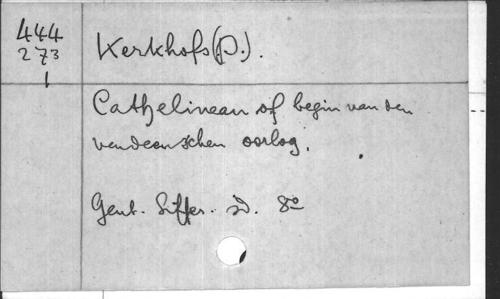 444
273
1
Kerkhofs (D.).
Cathelineau of begin van den
vendeeunschen oorlog.
Gent. Siffer. s.d. 8º